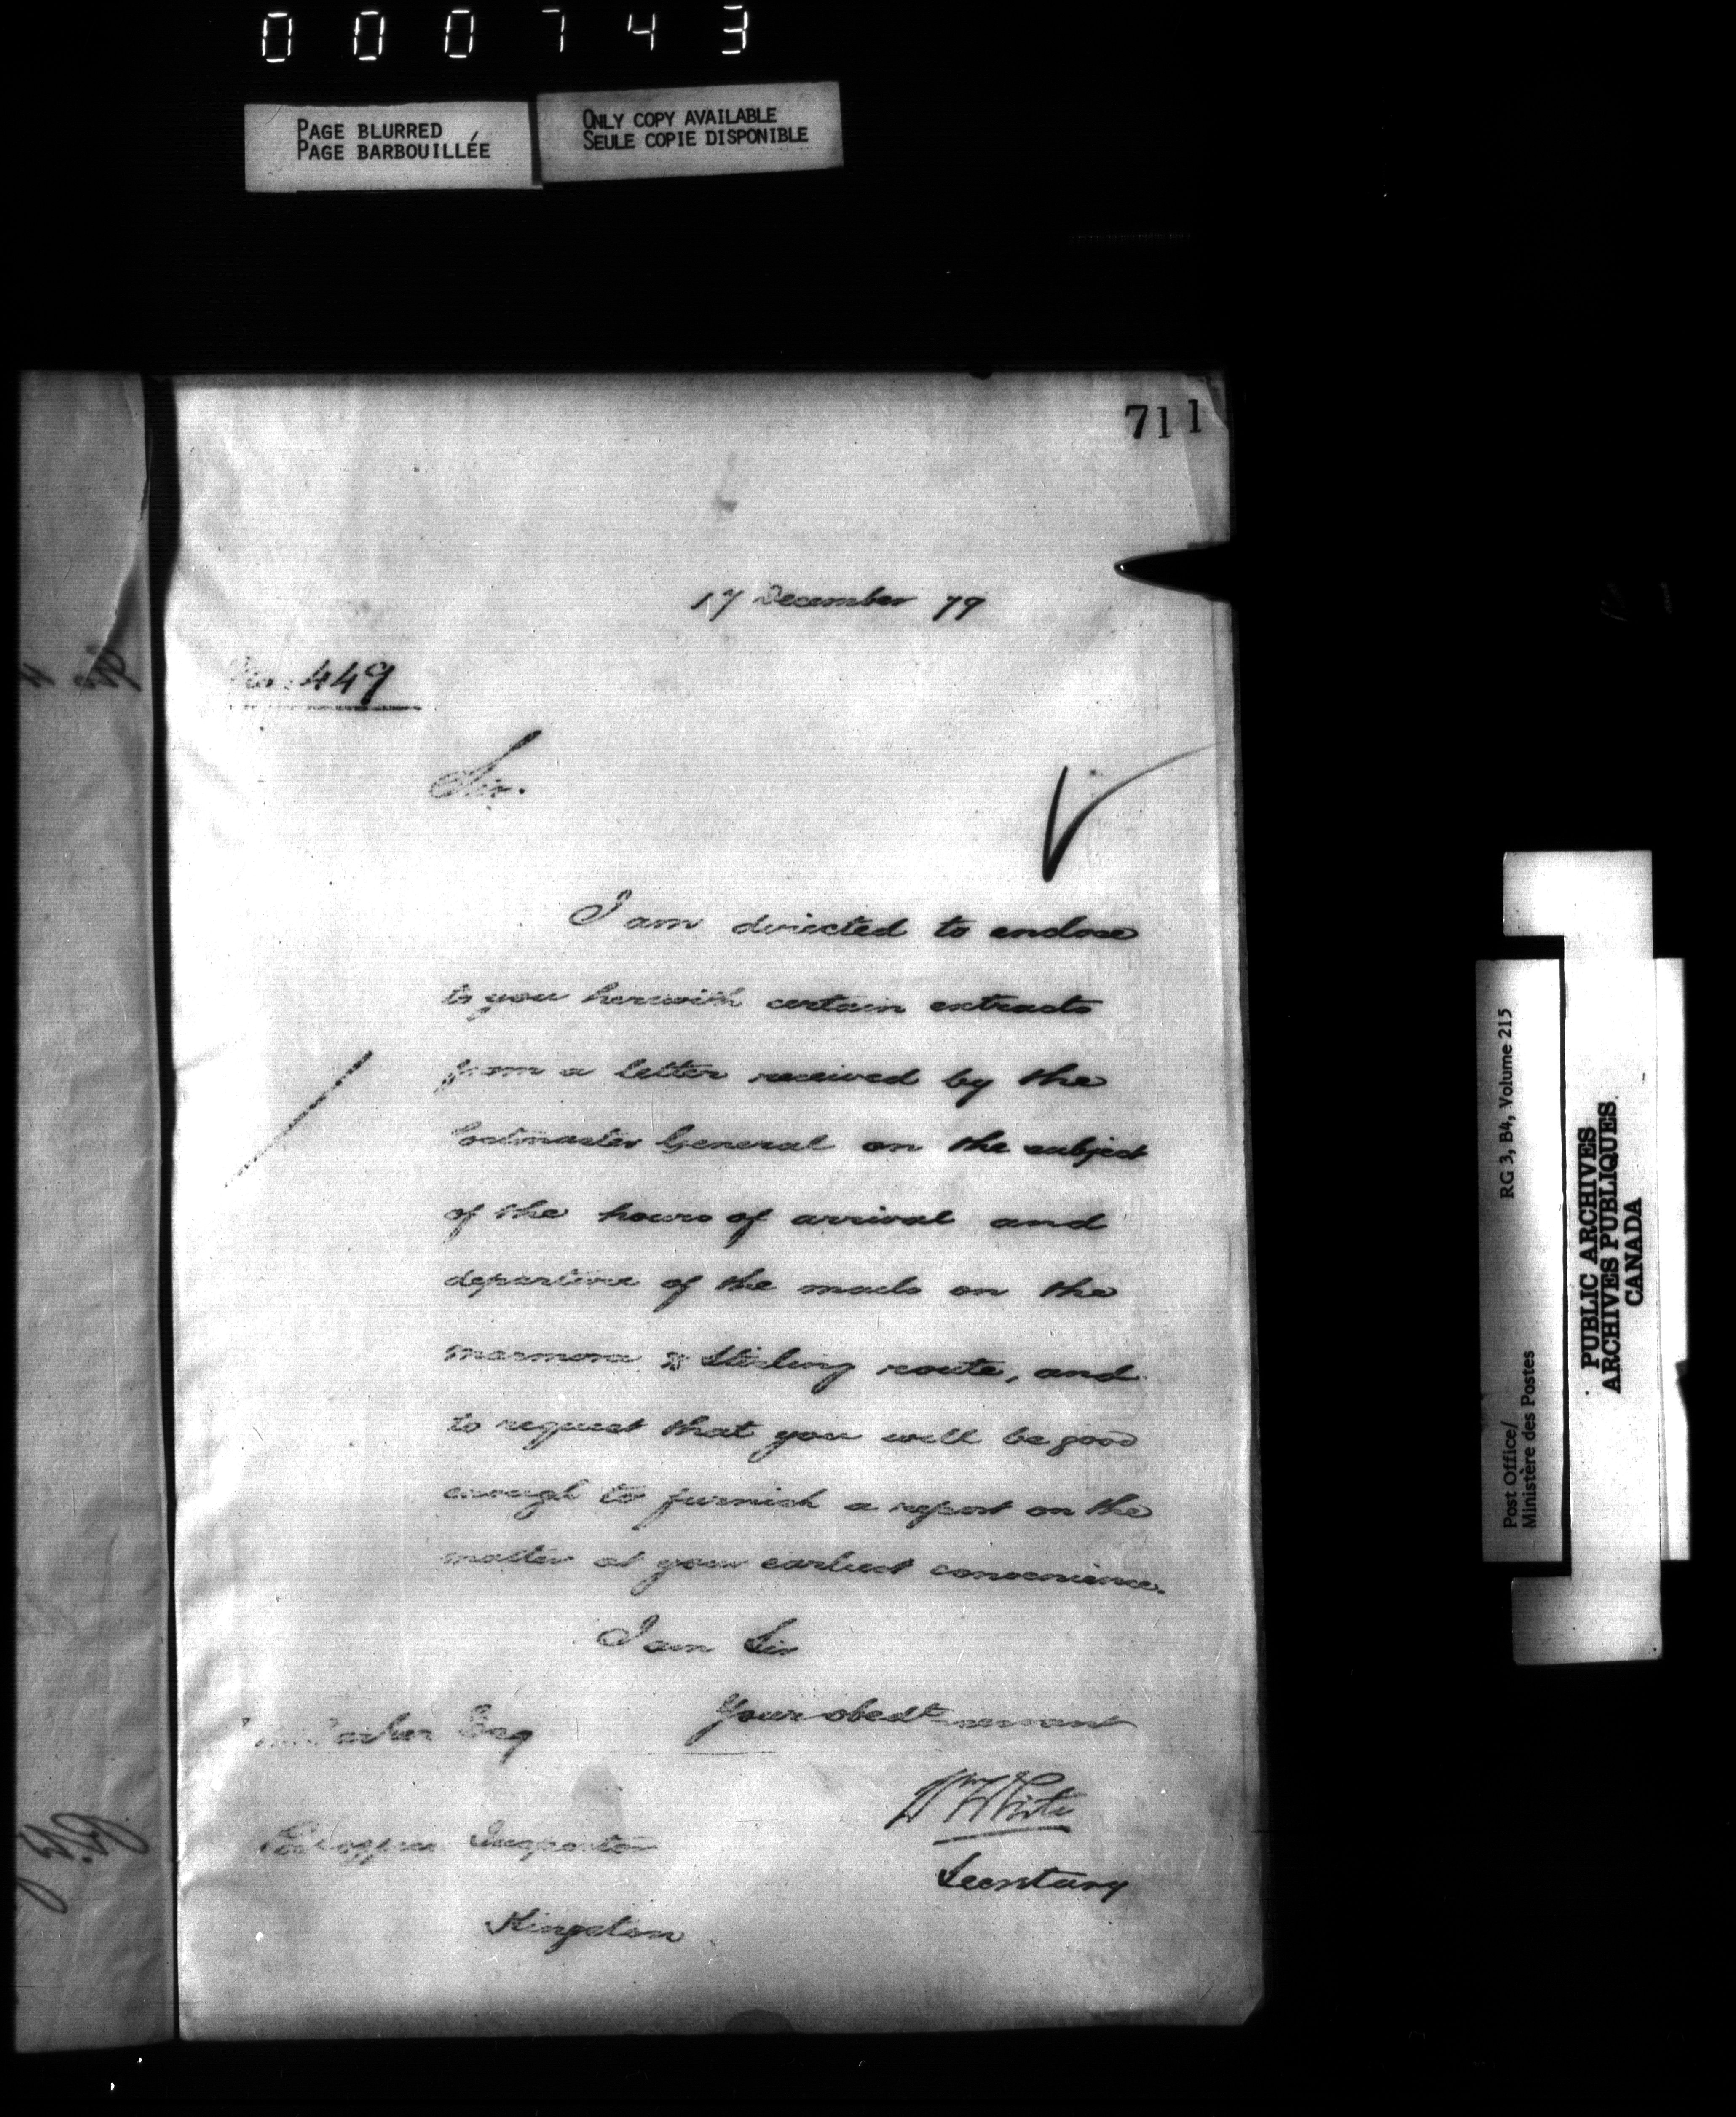 000743
PAGE BLURRED
PAGE BARBOUILLÉE
ONLY COPY AVAILABLE
SEULE COPIE DISPONIBLE
711
17 December 79
No. 449
Sir.
I am directed to enclose
to you herewith certain extracts
from a letter received by the
Postmaster General on the subject
of the hours of arrival and
departure of the mails on the
Marmora & Stirling route, and
to request that you will be good
enough to furnish a report on the
matter at your earliest convenience.
I am Sir
Your obedt servant
Wm White
Secretary
Esq
Post office Inspector
Kingston
Post Office/
Ministère des Postes
RG 3, B4, Volume 215
PUBLIC ARCHIVES
ARCHIVES PUBLIQUES
CANADA